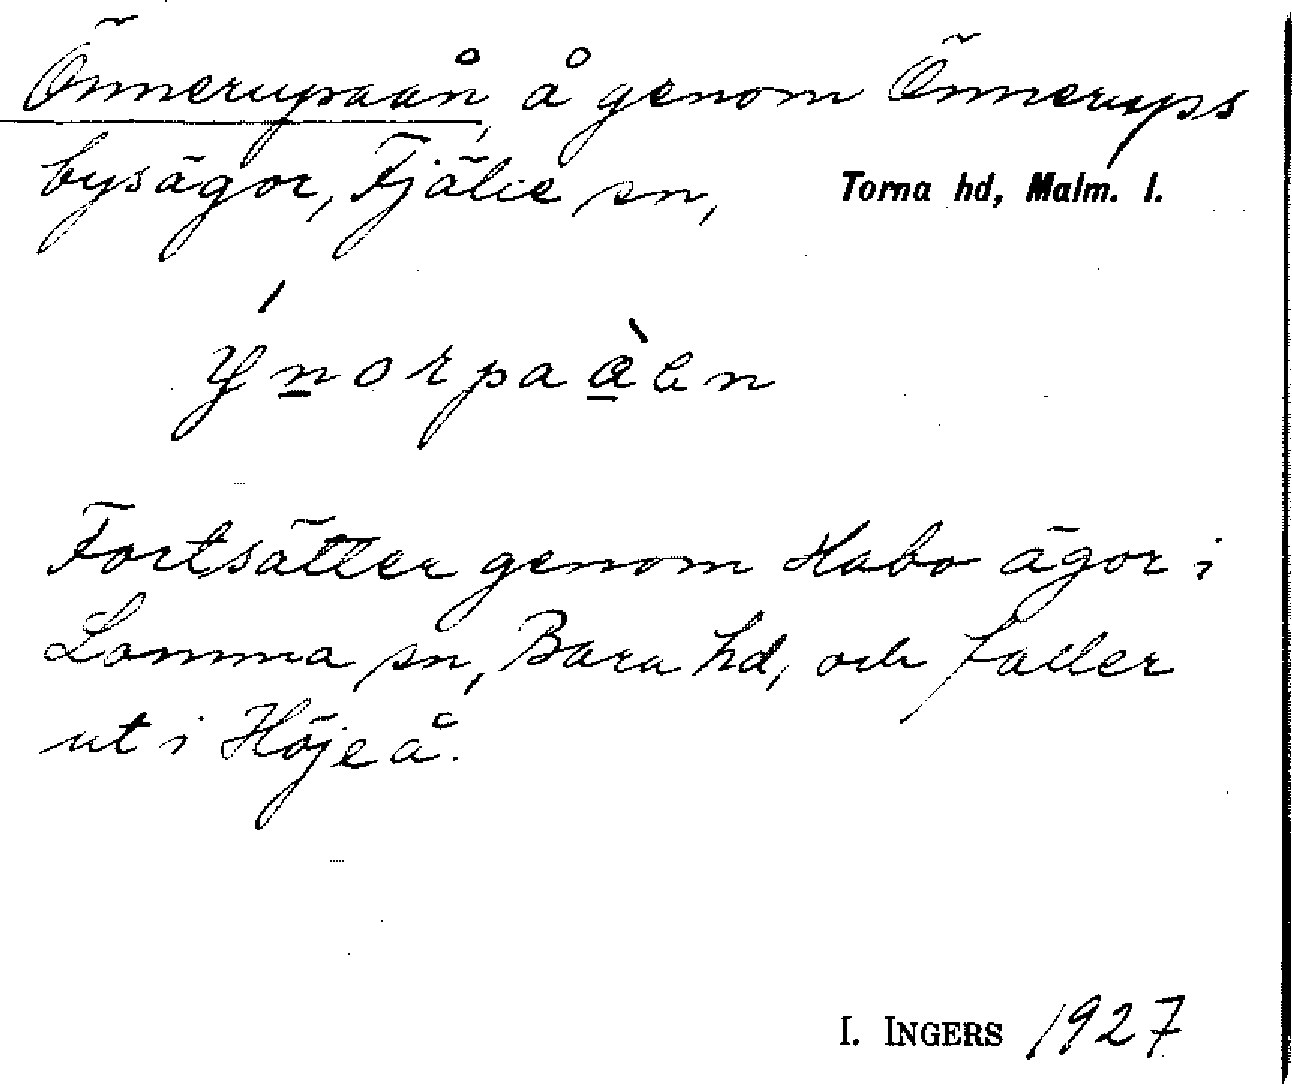 Önnerupaån, å genom Önnerups
bysägor, Fjälie sn, Torna hd, Malm. l.
ýnorpaàen
Fortsätter genom Habo ägor i
Lomma sn, Bara hd, och faller
ut i Höje å.
I. INGERS 1927